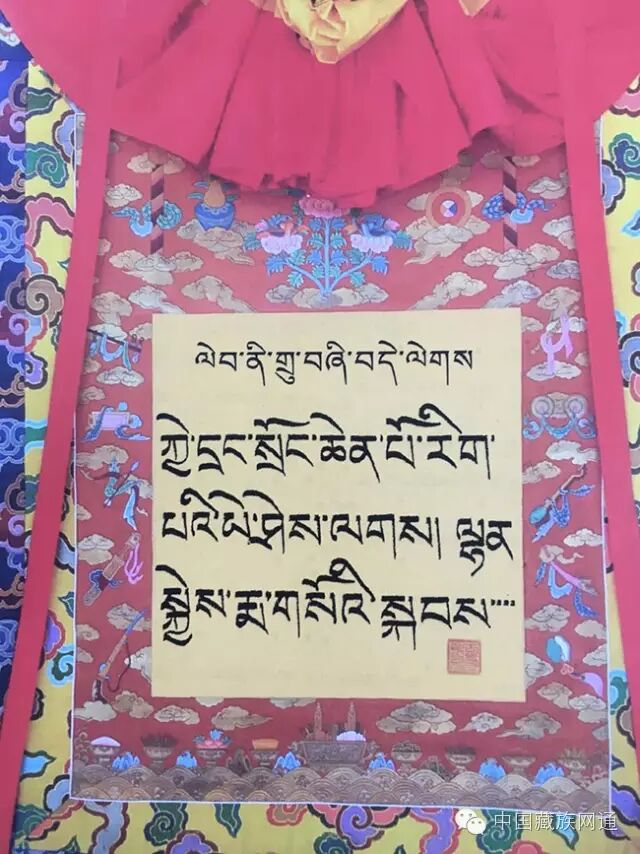 ལེབ་ནི་གྲུ་བཞི་བདེ་ལེགས
ཀྱེ་དྲང་སྲོང་ཆེན་པོ་རིག་
པའི་ཡེ་ཤེས་ལགས། ལྷན
སྐྱེས་རྨ་གསོའི་སྐབས་
中国藏族网通